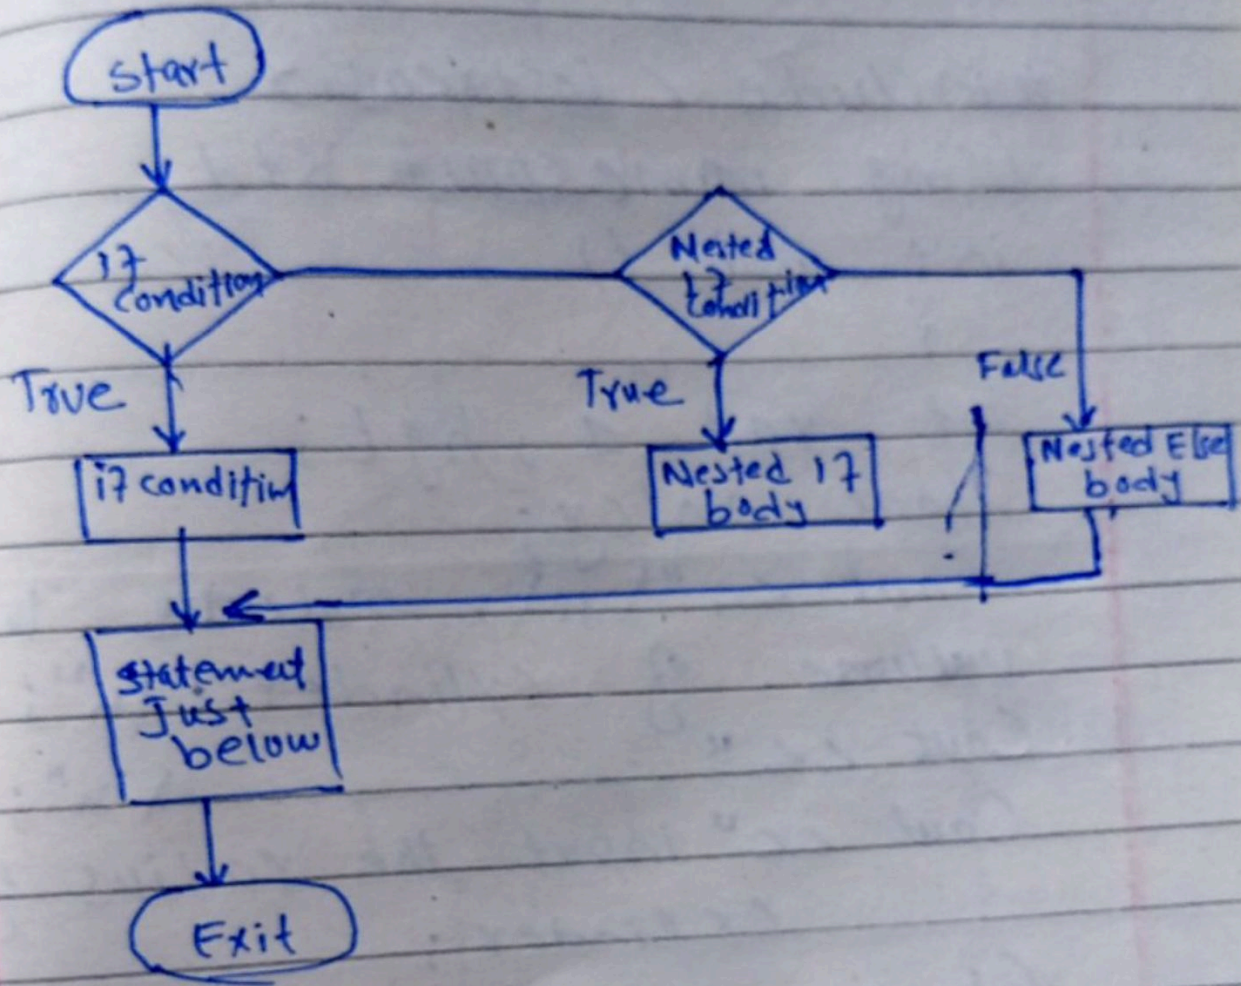 Start
if
condition
Nested
if
condition
True
True
False
if condition
Nested if
body
Nested Else
body
statement
Just
below
Exit